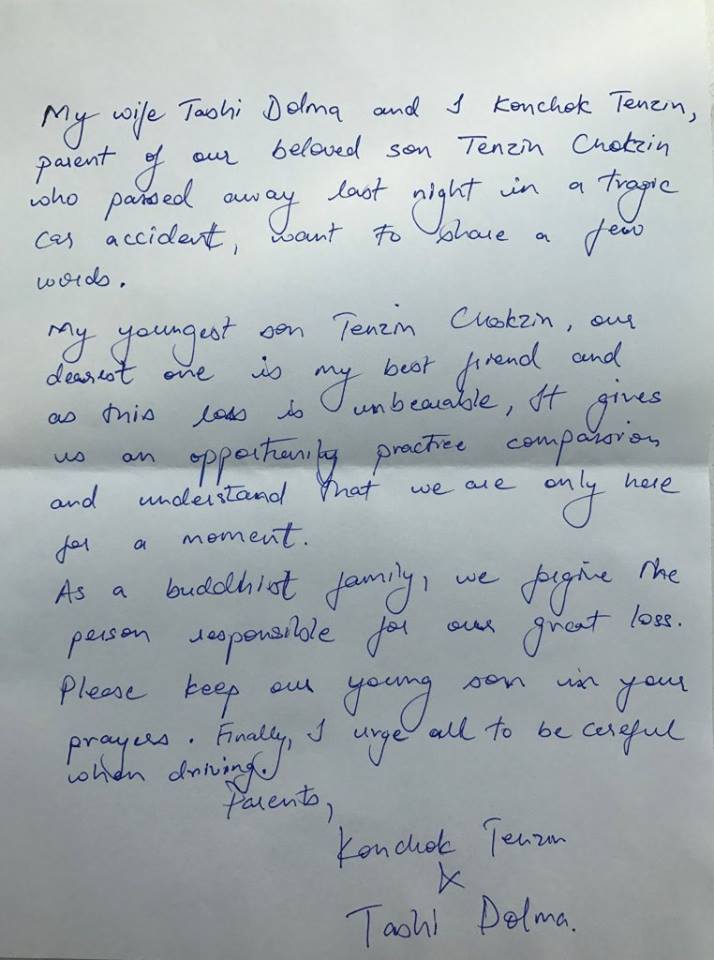 My wife Tashi Dolma and I Konchok Tenzin,
parent of our beloved son Tenzin Chokzin
who passed away last night in a tragic
car accident, want to share a few
words.
My youngest son Tenzin Chokzin, our
dearest one is my best friend and
as this loss is unbearable, It gives
us an opportunity practice compassion
and understand that we are only here
for a moment.
As a buddhist family, we forgive the
person responsible for our great loss.
Please keep our young son in your
prayers. Finally, I urge all to be careful
when driving.
Parents,
Konchok Tenzin
&
Tashi Dolma.